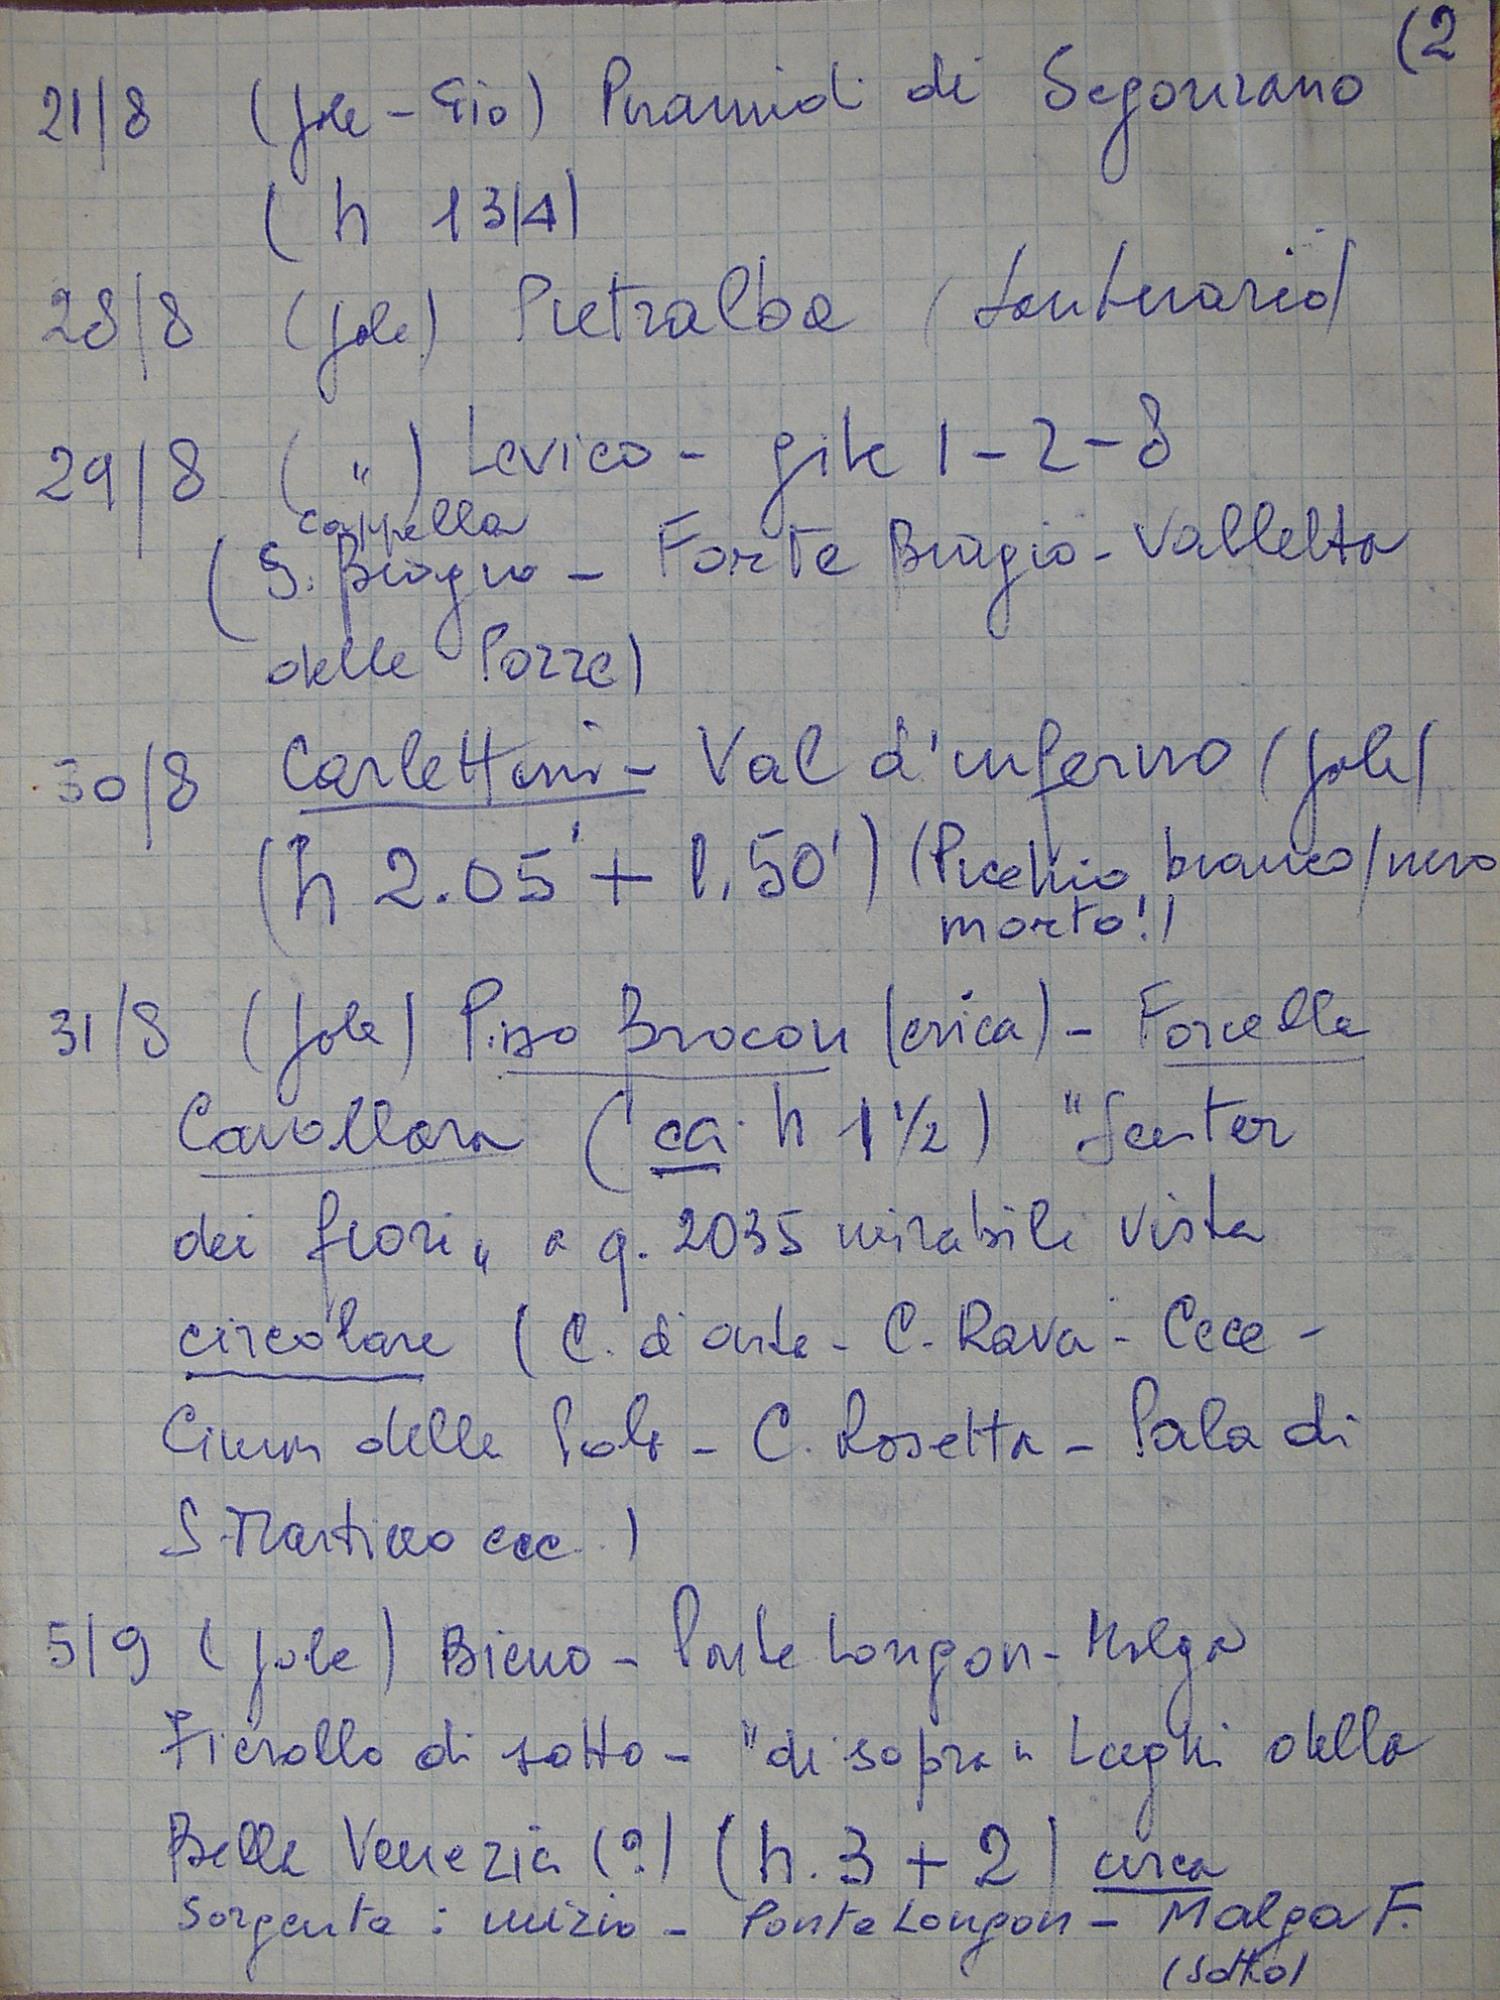 (2
21/8 (Jole - Giò) Piramidi di Segonzano
(h 1 3/4)
28/8 (Jole) Pietralba (santuario)
29/8 ( " ) Levico - gite 1-2-8
cappella
(S. Biagio - Forte Biagio - Valletta
delle Pozze)
30/8 Carlettini - Val d'inferno (Jole)
(h 2.05' + 1.50') (Picchio bianco/nero
morto!)
31/8 (Jole) P.sso Brocon (erica) - Forcella
Cavallara (ca. h 1 1/2) "Senter
dei fiori" a q. 2035 mirabile vista
circolare (C. d'Asta - C. Rava - Cece -
Cima delle Pale - C. Rosetta - Pala di
S. Martino ecc.)
5/9 (Jole) Bieno - Ponte Longon - Malga
Fierollo di sotto - "di sopra" Laghi della
Bella Venezia (?) (h. 3 + 2) circa
Sorgente: inizio - Ponte Longon - Malga F.
(sotto)